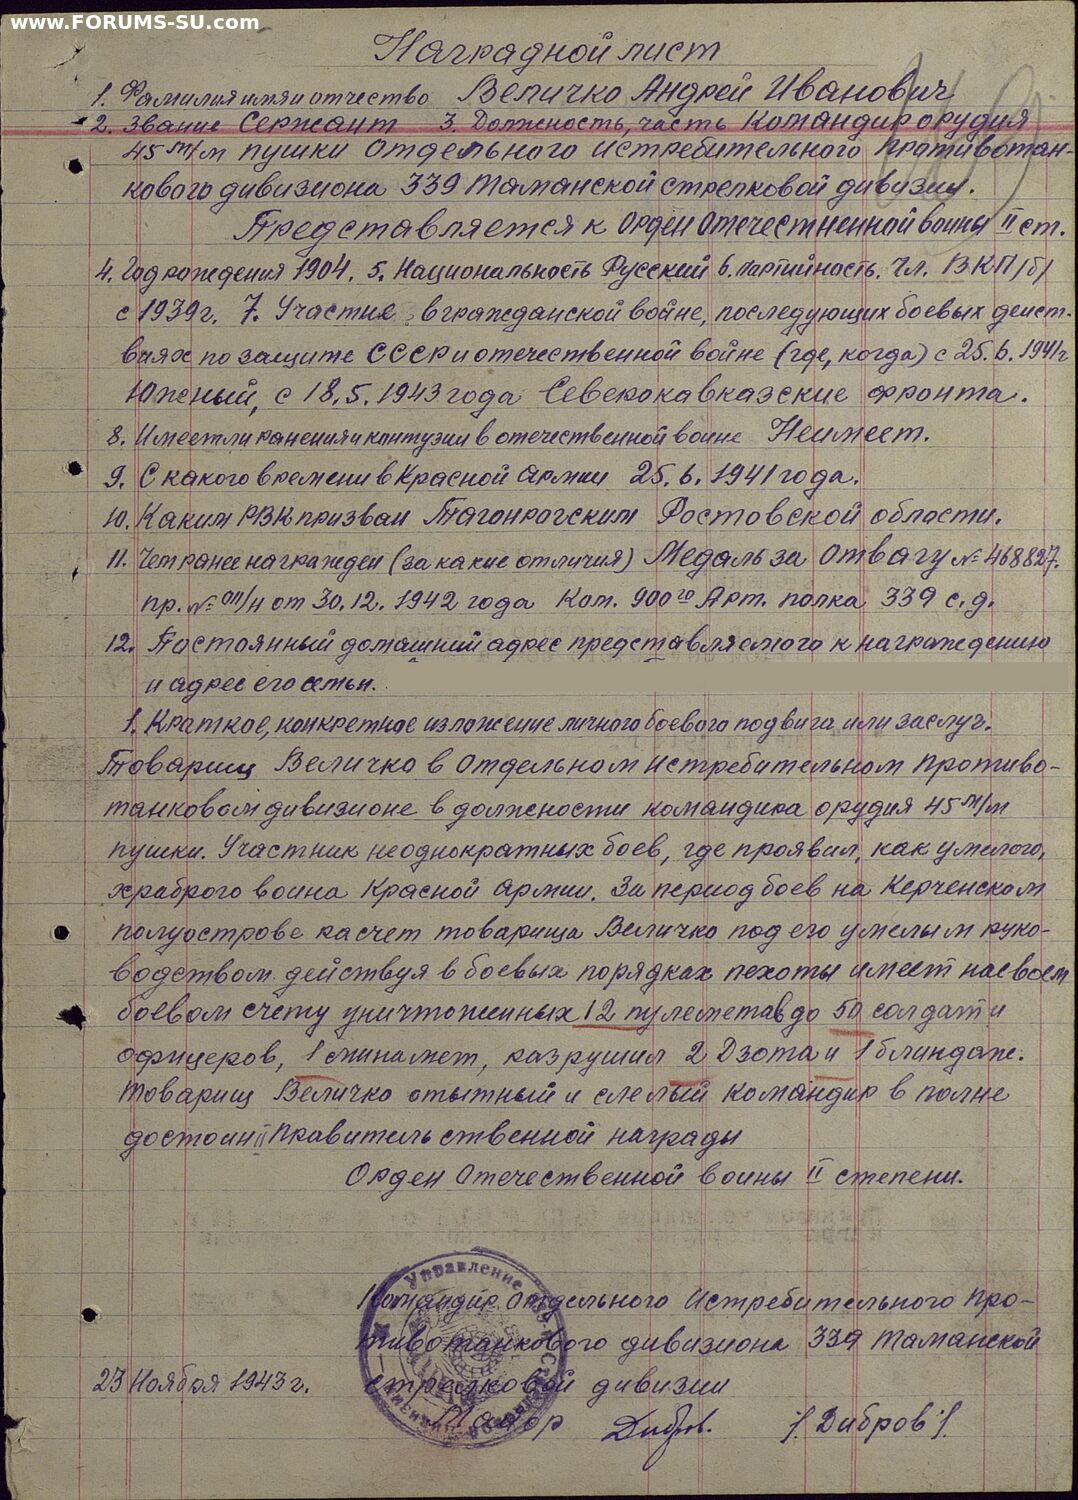 www.FORUMS-SU.com
Наградной лист
1. Фамилия имя и отчество Величко Андрей Иванович
2. Звание Сержант 3. Должность, часть Командир орудия
45 м/м пушки Отдельного истребительного противотан-
кового дивизиона 339 Таманской стрелковой дивизии.
Представляется к Орден Отечественной воины II ст.
4. Год рождения 1904. 5. Национальность Русский 6. Партийность. Чл. ВКП/б/
с 1939г. 7. Участие в гражданской войне, последующих боевых дейст-
виях по защите СССР и отечественной войне (где, когда) с 25.6.1941г
Южный, с 18.5.1943 года Северокавказские фронта.
8. Имеет ли ранения и контузии в отечественной воине Неимеет.
9. С какого времени в Красной Армии 25.6.1941 года.
10. Каким РВК призван Тагонрогским Ростовской области.
11. Чем ранее награжден (за какие отличия) Медаль за Отвагу № 468827.
пр. № 011/н от 30.12.1942 года Ком. 900го Арт. полка 339 с.д.
12. Постоянный домашний адрес представляемого к награждению
и адрес его семьи.
1. Краткое, конкретное изложение личного боевого подвига или заслуг.
Товарищ Величко в Отдельном истребительном Противо-
танковом дивизионе в должности командира орудия 45 м/м
пушки. Участник неоднократных боев, где проявил, как умелого,
храброго воина Красной Армии. За период боев на Керченском
полуострове расчет товарища Величко под его умелым руко-
водством действуя в боевых порядках пехоты имеет на своем
боевом счету уничтоженных 12 пулеметов до 50 солдат и
офицеров, 1 миномет, разрушил 2 Дзота и 1 блиндаж.
Товарищ Величко опытный и смелый командир в полне
достоин Правительственной награды
Орден Отечественной воины II степени.
Командир Отдельного Истребительного Про-
тивотанкового дивизиона 339 Таманской
стрелковой дивизии
23 Ноября 1943 г.
Майор Дибров. /Дибров/.
Управление